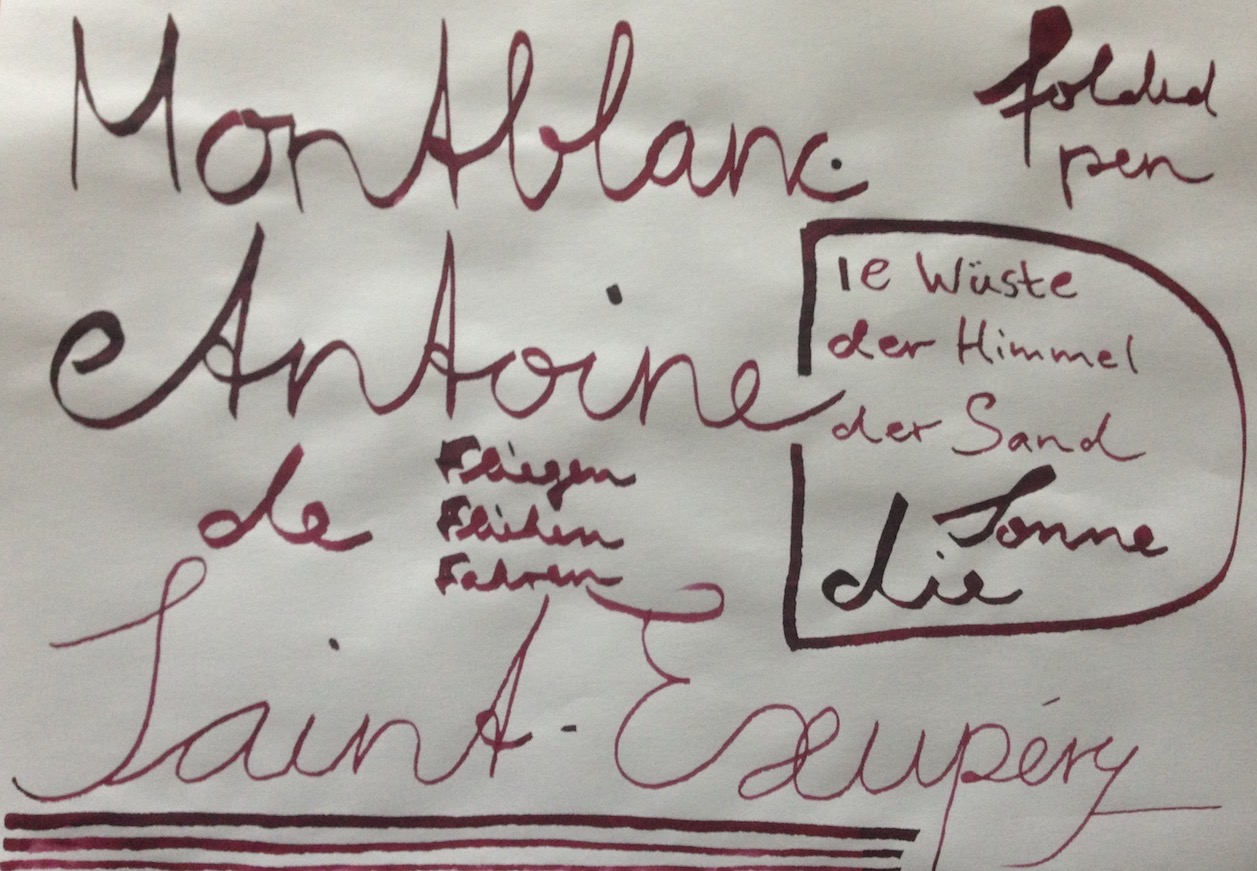 Montblanc
folded
pen
Antoine
de
Fliegen
Fliehen
Fahren
Saint-Exupéry
Die Wüste
der Himmel
der Sand
die Sonne